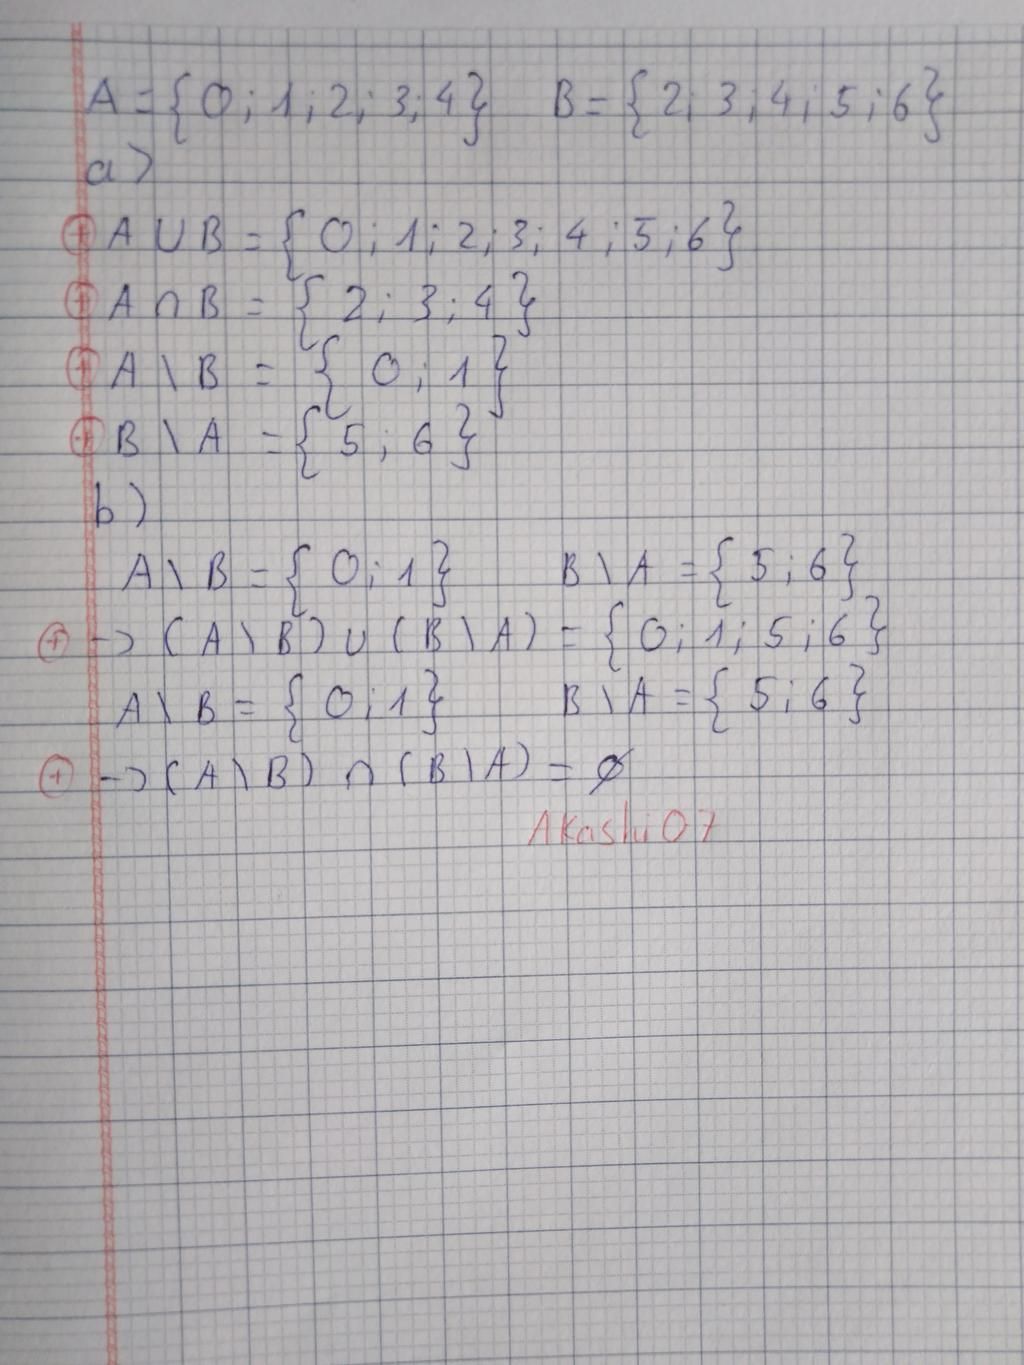 A = {0; 1; 2; 3; 4} B = {2; 3; 4; 5; 6}
a)
+ A ∪ B = {0; 1; 2; 3; 4; 5; 6}
+ A ∩ B = {2; 3; 4}
+ A \ B = {0; 1}
+ B \ A = {5; 6}
b)
A \ B = {0; 1} B \ A = {5; 6}
+ → (A \ B) ∪ (B \ A) = {0; 1; 5; 6}
A \ B = {0; 1} B \ A = {5; 6}
+ → (A \ B) ∩ (B \ A) = ∅
Akashi07